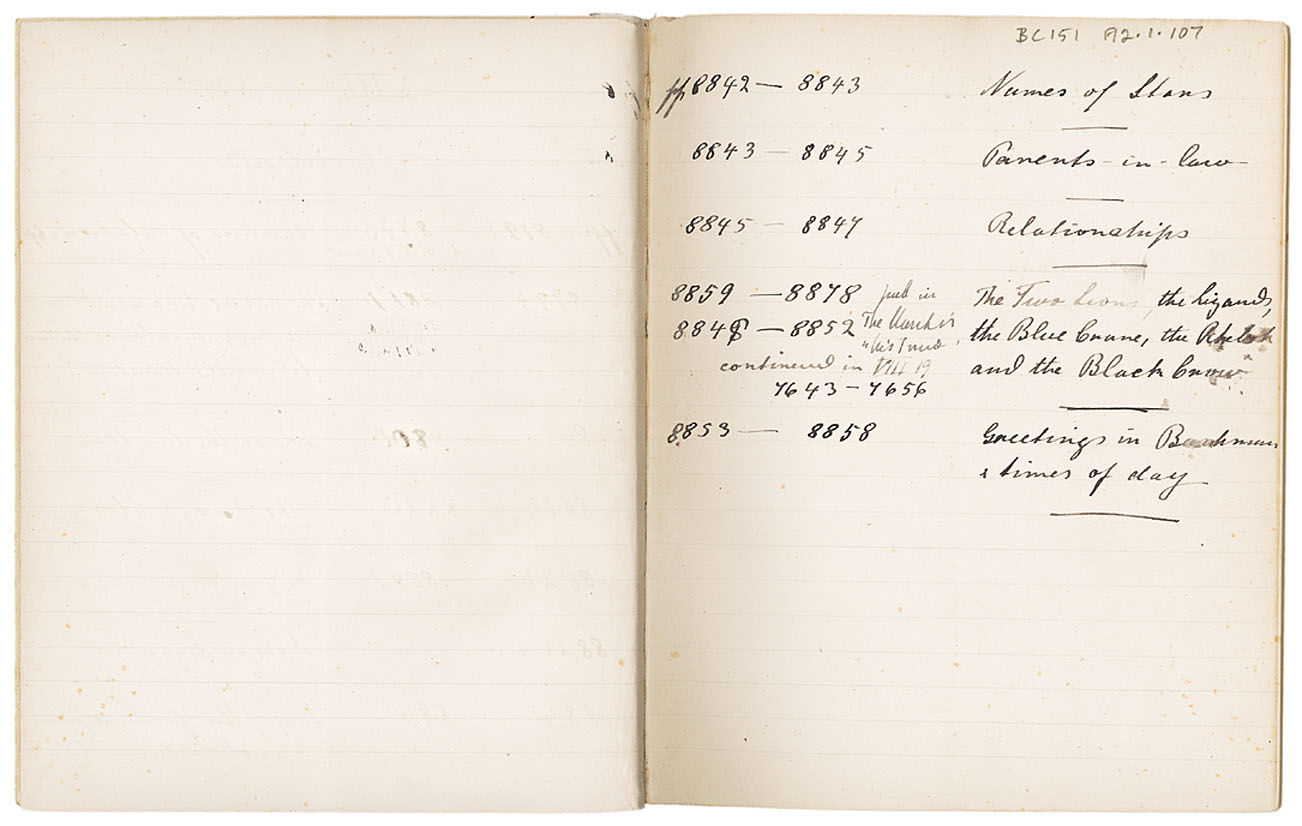 BC151 A2.1.107
pp 8842 — 8843 Names of Stars
8843 — 8845 Parents-in-law
8845 — 8847 Relationships
8859 — 8878 pub in The Two Lions, the lizards,
8848 — 8852 The Mantis the Blue Crane, the
continued in VIII 19 and the Black Crow
7643 — 7656
8853 — 8858 Greetings in Bushman
& times of day